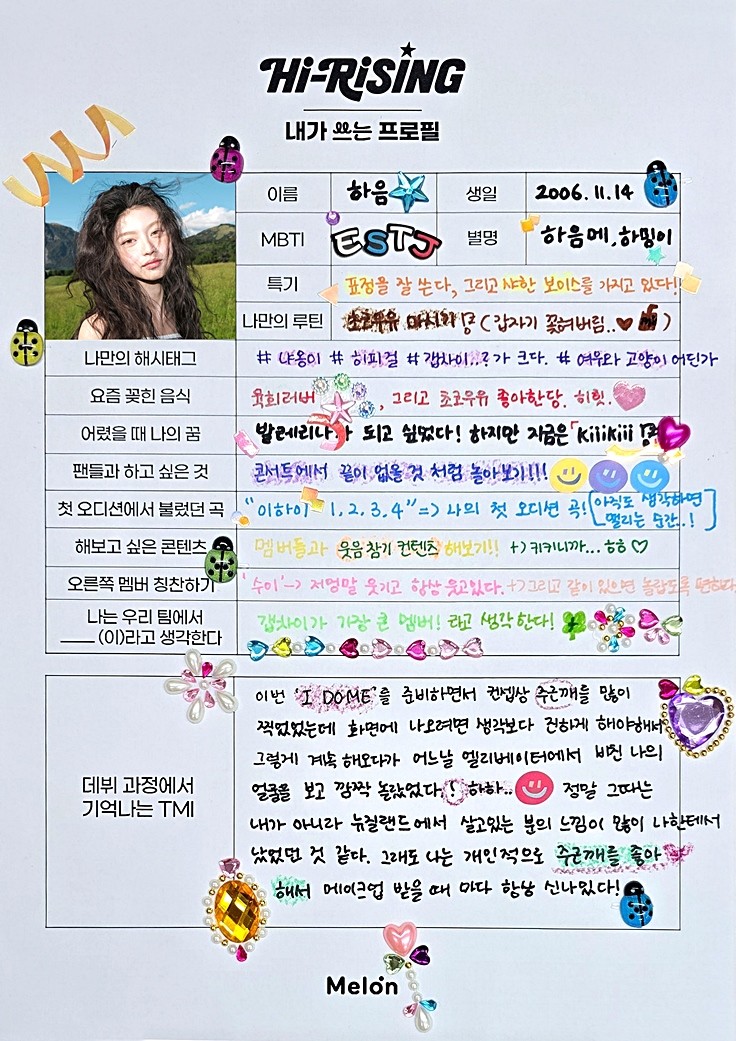 Hi-RiSiNG
내가 쓰는 프로필
이름 하음 생일 2006. 11. 14
MBTI ESTJ 별명 하음메, 하밍이
특기 표정을 잘 쓴다, 그리고 샤한 보이스를 가지고 있다!
나만의 루틴 초코우유 마시기 (갑자기 꽂혀버림..♥ )
나만의 해시태그 # 냐옹이 # 히피걸 # 갭차이..?가 크다. # 여우와 고양이 어딘가
요즘 꽂힌 음식 육회러버 , 그리고 초코우유 좋아한당. 히힛.
어렸을 때 나의 꿈 발레리나가 되고 싶었다! 하지만 지금은 "Kiiikiii
팬들과 하고 싶은 것 콘서트에서 끝이 없을 것 처럼 놀아보기!!!
첫 오디션에서 불렀던 곡 "이하이 1, 2, 3, 4" => 나의 첫 오디션 곡! [아직도 생각하면
떨리는 순간..!]
해보고 싶은 콘텐츠 멤버들과 웃음참기 컨텐츠 해보기!! +) 키키니까... ㅎㅎ ♡
오른쪽 멤버 칭찬하기 '수이' -> 저엉말 웃기고 항상 웃고있다. +) 그리고 같이 있으면 놀랍도록 편하다
나는 우리 팀에서
____ (이)라고 생각한다 갭차이가 가장 큰 멤버! 라고 생각한다!
데뷔 과정에서
기억나는 TMI
이번 'I DOME'을 준비하면서 컨셉상 주근깨를 많이
찍었었는데 화면에 나오려면 생각보다 진하게 해야해서
그렇게 계속 해오다가 어느날 엘리베이터에서 비친 나의
얼굴을 보고 깜짝 놀랐었다(!) 하하.. 정말 그때는
내가 아니라 뉴질랜드에서 살고있는 분의 느낌이 많이 나한테서
났었던 것 같다. 그래도 나는 개인적으로 주근깨를 좋아
해서 메이크업 받을 때 마다 항상 신나있다!
Melon